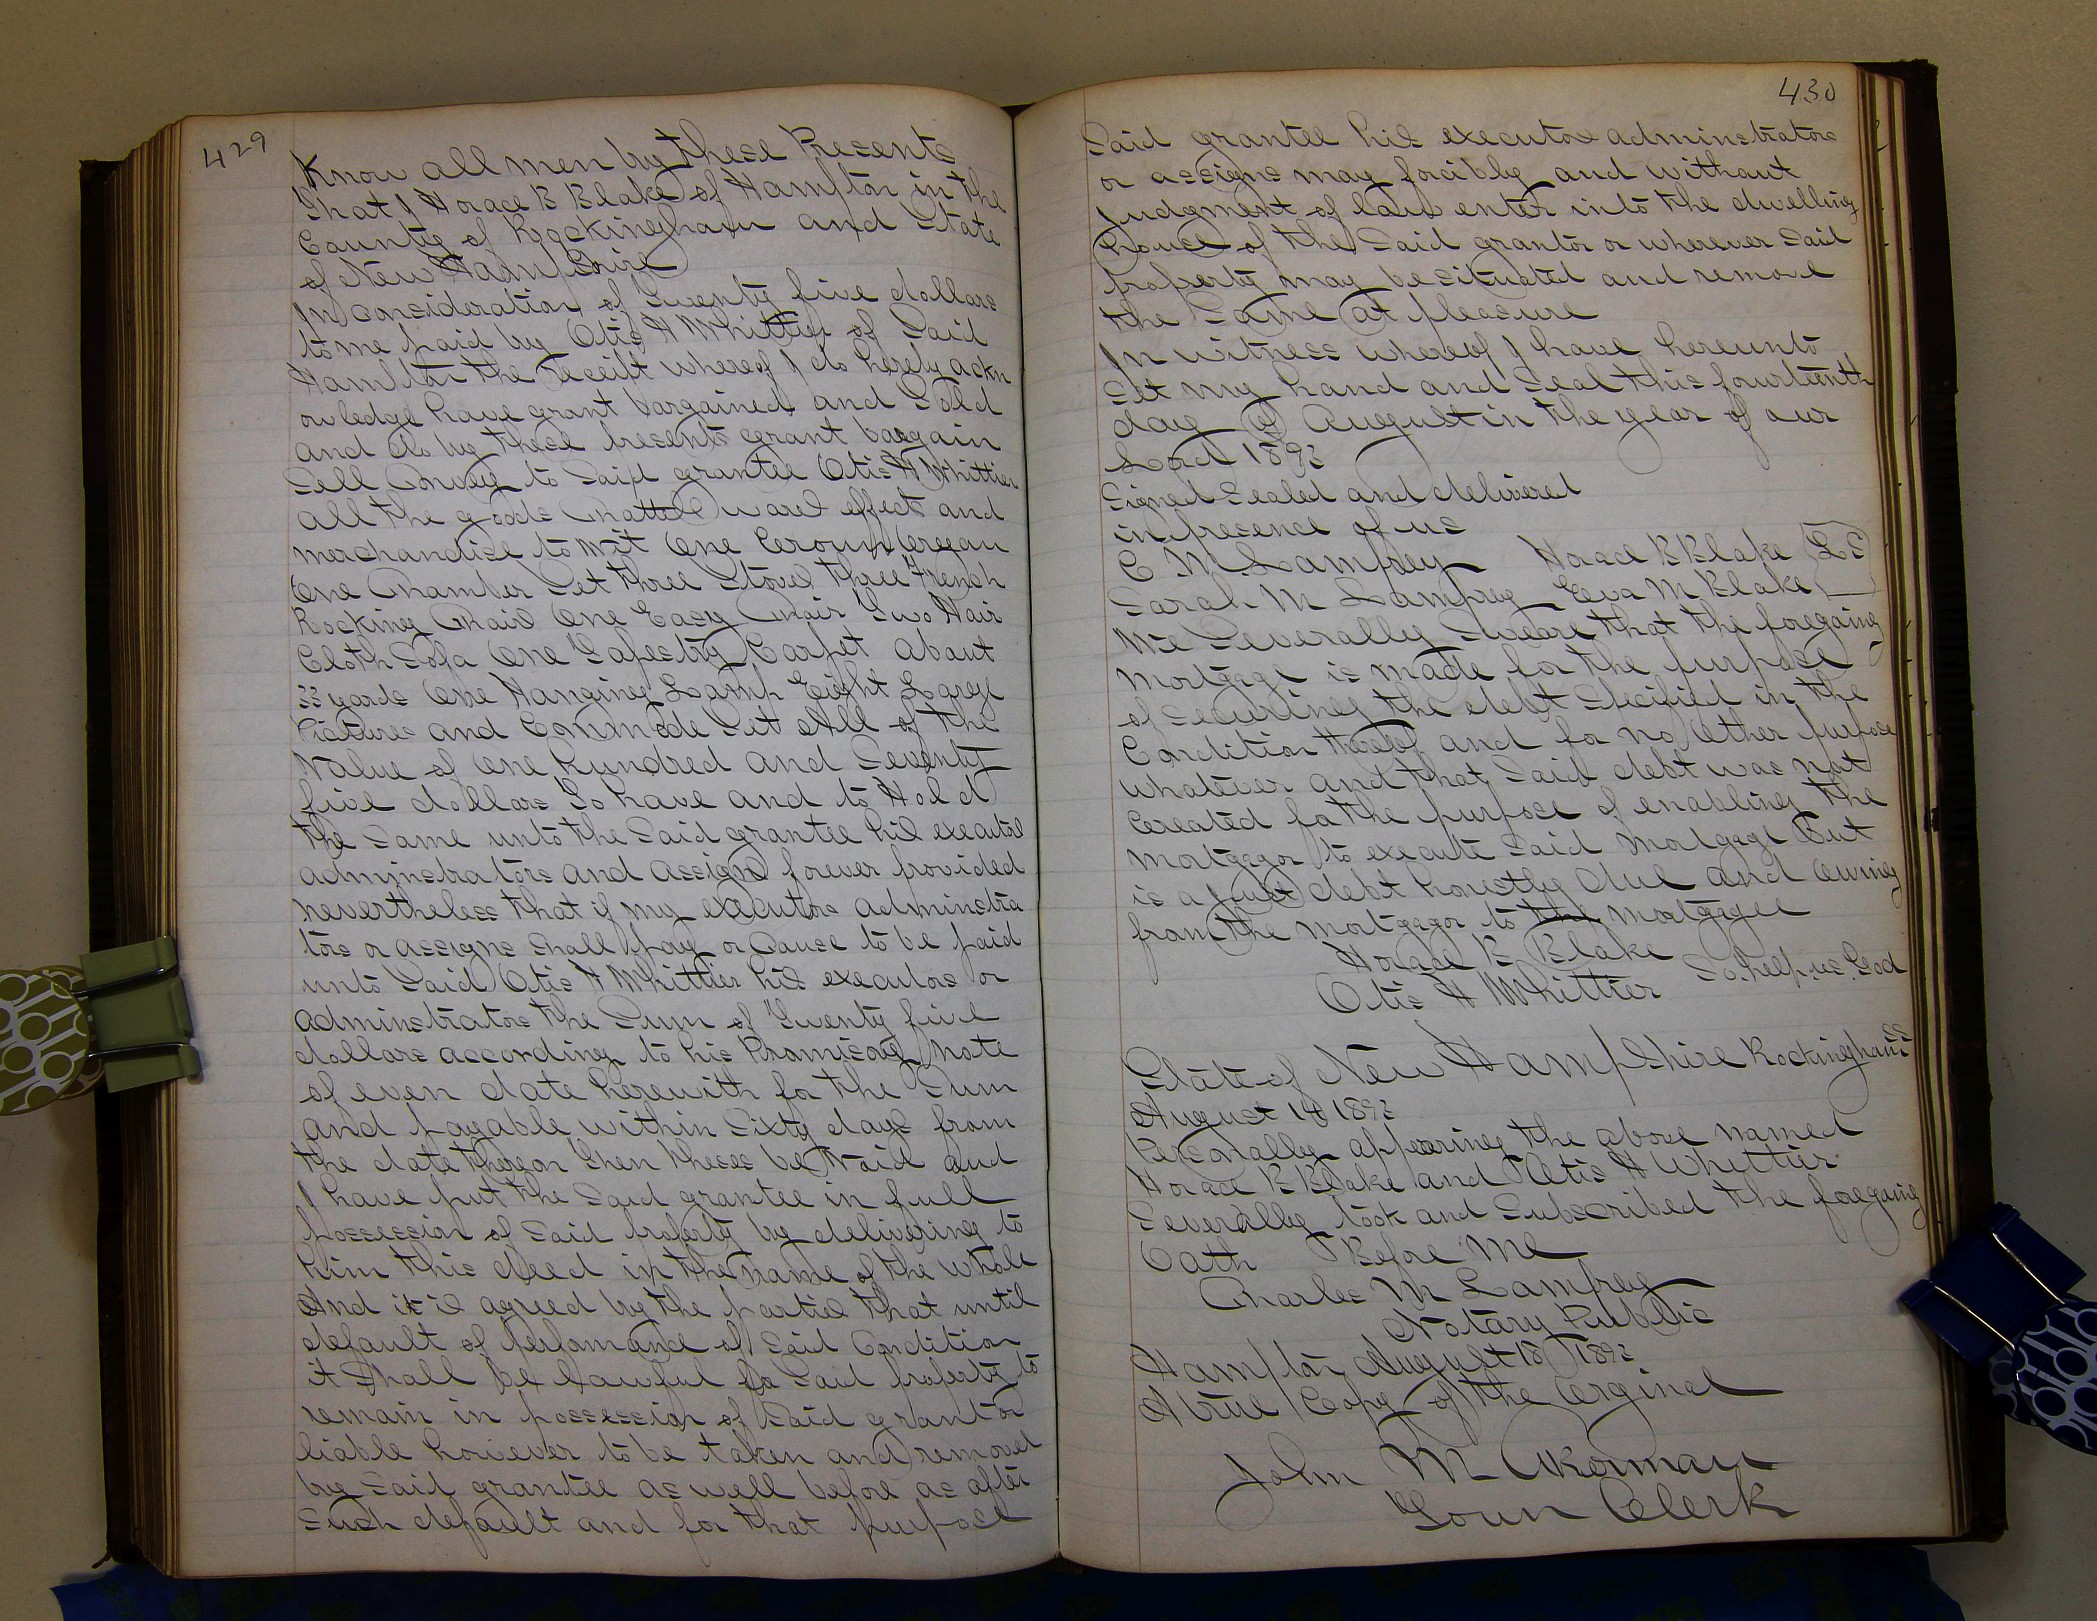 429
Know all men by these Presents
That I Horace B Blake of Hampton in the
County of Rockingham and State
of New Hampshire
In consideration of Twenty five dollars
to me paid by Otis H Whittier of Said
Hampton the receipt whereof I do hereby ackn
owledge have grant bargained and Sold
and do by these presents grant bargain
Sell Convey to Said grantee Otis H Whittier
all the goods Chattels wares effects and
merchandise to wit One Crown Orgean
One Chamber Set three Stoves three French
Rocking Chairs One Easy Chair Two Hair
Cloth Sofa One Tapestry Carpet about
33 yards One Hanging Lamp Eight Large
Pictures and Commode Set All of the
Value of One Hundred and Seventy
five dollars To have and to Hold
the Same unto the Said grantee his executors
adminstrators and assigns forever provided
nevertheless that if my executors adminstra
tors or assigns shall pay or Cause to be paid
unto Said Otis H Whittier his executors or
adminstrators the Sum of Twenty five
dollars according to his Promisory note
of even date herewith for the Sum
and payable within Sixty days from
the date thereon then these be Void and
I have put the Said grantee in full
possession of Said property by delivering to
him this deed in the name of the whole
And it is agreed by the parties that until
default of perfomance of Said Condition
it Shall be lawful for Said property to
remain in possession of Said grantor
liable however to be taken and removed
by Said grantee as well before as after
Such default and for that purpose
430
Said grantee his executors adminstrators
or assigns may forcibly and without
judgment of law enter into the dwelling
house of the Said grantor or wherever Said
property may be situated and remove
the Same at pleasure
In witness whereof I have hereunto
Set my hand and Seal this fourteenth
day of August in the year of our
Lord 1893
Signed Sealed and delivered
in presence of us
C M Lamprey Horace B Blake LS
Sarah M Lamprey Eva M Blake
We Severally Sweare that the foregoing
Mortgage is made for the purpose
of securing the debt Specified in the
Condition thereof and for no Other purpose
whatever and that Said debt was not
Created for the purpose of enabling the
Mortgagor to execute Said Mortgage But
is a just debt honestly due and Owing
from the mortgagor to the mortgagee
Horace B Blake
So help us God
Otis H Whittier
State of New Hampshire Rockingham SS
August 14 1893
Personally appearing the above named
Horace B Blake and Otis H Whittier
Severally took and Subscribed the foregoing
Oath Before Me
Charles M Lamprey
Notary Public
Hampton August 18 1893
A true Copy of the Orginal
John M Akerman
Town Clerk